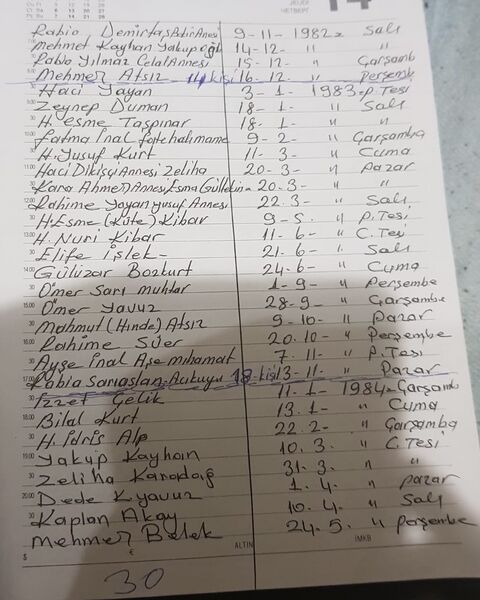 JEUDI
HETBEPГ
14
Rabio Demirtaş Bekir Annesi 9-11-1982 Salı
Mehmet Kayhan Yakupoğlı 14-12- " "
Rabio Yılmaz Celal Annesi 15-12- " Çarşamb
Mehmet Atsız - 14 kişi 16-12. " Perşemb
Hacı Yayan 3-1-1983-P.Tesi
Zeynep Duman 18-1- " Salı
H. esme Taşpınar 18-1- " "
Fatma İnal 9-2- " Çarşamba
H. Yusuf Kurt 11-3- " Cuma
Haci Dikişçi Annesi Zeliha 20-3- " Pazar
Kara Ahmet Annesi Esma Gültekin - 20-3- " "
Rahime Yayan Yusuf Annesi 22.3- " Salı
H. Esme (Küte) Kibar 9-5. " P.Tesi
H. Nuri Kibar 11-6- " C.Tesi
Elife İşlek- 21.6- " Salı
Gülüzar Bozkurt 24.6- " Cuma
Ömer Sarı muhtar 1-9- " Perşembe
Ömer Yavuz 28-9- " Çarşamba
Mahmut (Hinde) Atsız 9-10- " Pazar
Rahime Süer 20.10- " Perşembe
Ayşe İnal 7-11- " P.Tesi
Rabia Sarıaslan 18-kişi 13-11- " Pazar
İzzet Çelik 11-1-1984-Çarşamb
Bilal Kurt 13.1- " Cuma
H. İdris Alp 22.2- " Çarşamba
Yakup Kayhan 10.3. " C.Tesi
Zeliha Karadağ 31.3. " "
Dede K.yavuz 1.4. " pazar
Kaplan Akay 10.4. " Salı
Mehmet Belek 24.5. " Perşembe
$ € ALTIN İMKB
30